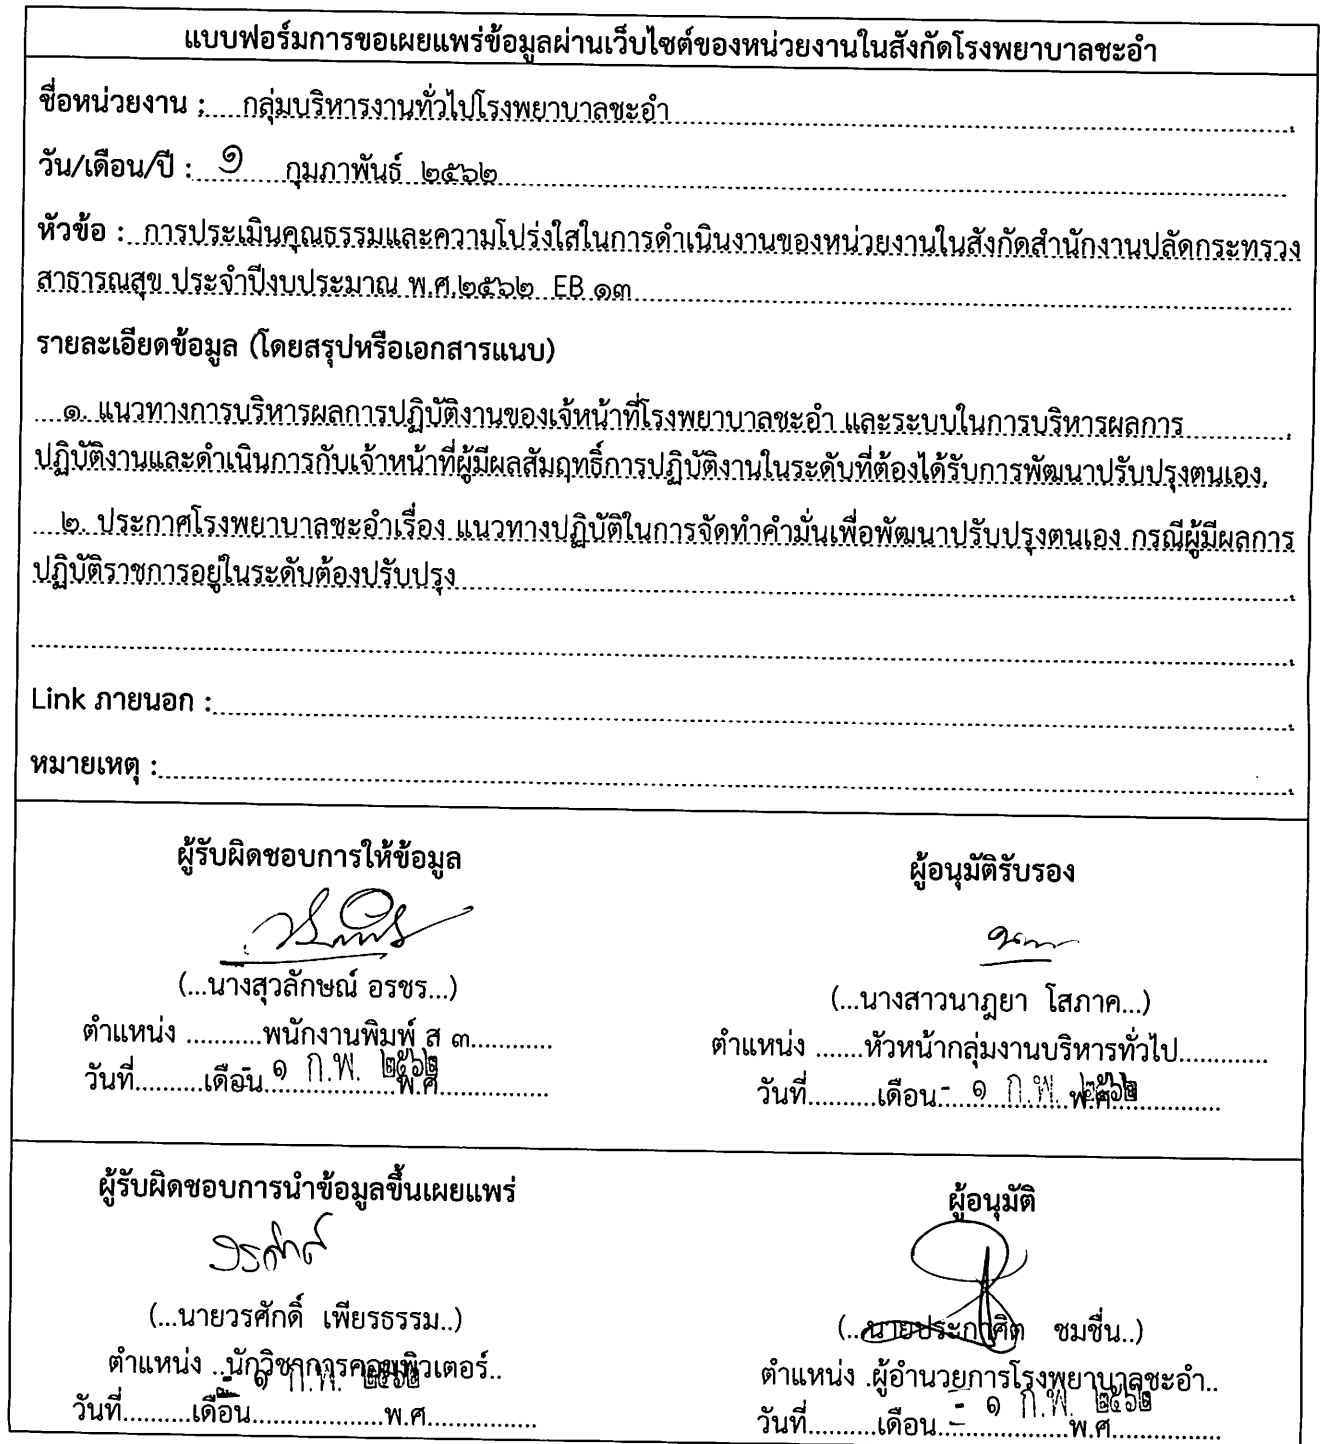 แบบฟอร์มการขอเผยแพร่ข้อมูลผ่านเว็บไซต์ของหน่วยงานในสังกัดโรงพยาบาลชะอำ
ชื่อหน่วยงาน :.....กลุ่มบริหารงานทั่วไปโรงพยาบาลชะอำ
วัน/เดือน/ปี : ๑ กุมภาพันธ์ ๒๕๖๒
หัวข้อ : การประเมินคุณธรรมและความโปร่งใสในการดำเนินงานของหน่วยงานในสังกัดสำนักงานปลัดกระทรวง
สาธารณสุข ประจำปีงบประมาณ พ.ศ.๒๕๖๒ EB ๑๓
รายละเอียดข้อมูล (โดยสรุปหรือเอกสารแนบ)
....๑. แนวทางการบริหารผลการปฏิบัติงานของเจ้หน้าที่โรงพยาบาลชะอำ และระบบในการบริหารผลการ
ปฏิบัติงานและดำเนินการกับเจ้าหน้าที่ผู้มีผลสัมฤทธิ์การปฏิบัติงานในระดับที่ต้องได้รับการพัฒนาปรับปรุงตนเอง
....๒. ประกาศโรงพยาบาลชะอำเรื่อง แนวทางปฏิบัติในการจัดทำคำมั่นเพื่อพัฒนาปรับปรุงตนเอง กรณีผู้มีผลการ
ปฏิบัติราชการอยู่ในระดับต้องปรับปรุง
Link ภายนอก :
หมายเหตุ :
ผู้รับผิดชอบการให้ข้อมูล
(...นางสุวลักษณ์ อรชร...)
ตำแหน่ง ..........พนักงานพิมพ์ ส ๓............
วันที่..........เดือน - ๑ ก.พ. ๒๕๖๒ พ.ศ...............
ผู้อนุมัติรับรอง
(...นางสาวนาฎยา โสภาค...)
ตำแหน่ง .......หัวหน้ากลุ่มงานบริหารทั่วไป.............
วันที่..........เดือน - ๑ ก.พ. ๒๕๖๒ พ.ศ...............
ผู้รับผิดชอบการนำข้อมูลขึ้นเผยแพร่
วรศักดิ์
(...นายวรศักดิ์ เพียรธรรม..)
ตำแหน่ง ..นักวิชาการคอมพิวเตอร์..
- ๑ ก.พ. ๒๕๖๒
วันที่..........เดือน....................พ.ศ.................
ผู้อนุมัติ
(..นายประกาศิต ชมชื่น..)
ตำแหน่ง .ผู้อำนวยการโรงพยาบาลชะอำ..
วันที่..........เดือน - ๑ ก.พ. ๒๕๖๒ พ.ศ.................